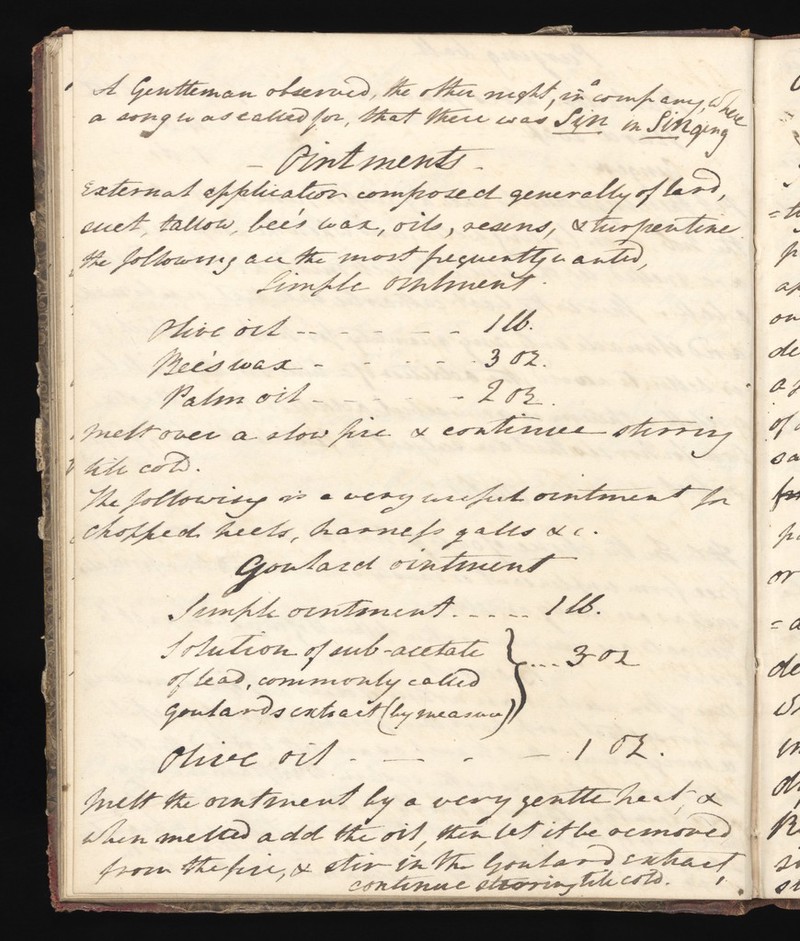 A Gentleman observed, the other night, in a company, where
a song was called for, that there was Sin in Singing
- Ointments -
External application composed generally of lard,
suet, tallow, bee's wax, oils, resens, & turpentine
the following are the most frequently wanted,
Simple ointment.
Olive oil - - - - - - 1 lb.
Bee's wax - - - - - 3 oz.
Palm oil - - - - - 2 oz.
Melt over a slow fire & continue stirring
till cold.
The following is a very useful ointment for
chopped heels, harness galls &c.
Goulard ointment
Simple ointment. - - - - 1 lb.
Solution of sub-acetate
of lead, commonly called } .... 3 oz
Goulards extract (by measure)
Olive oil - - - - 1 oz.
Melt the ointment by a very gentle heat, &
when melted add the oil, then let it be removed
from the fire, & stir in the Goulard extract
continue stirring till cold.